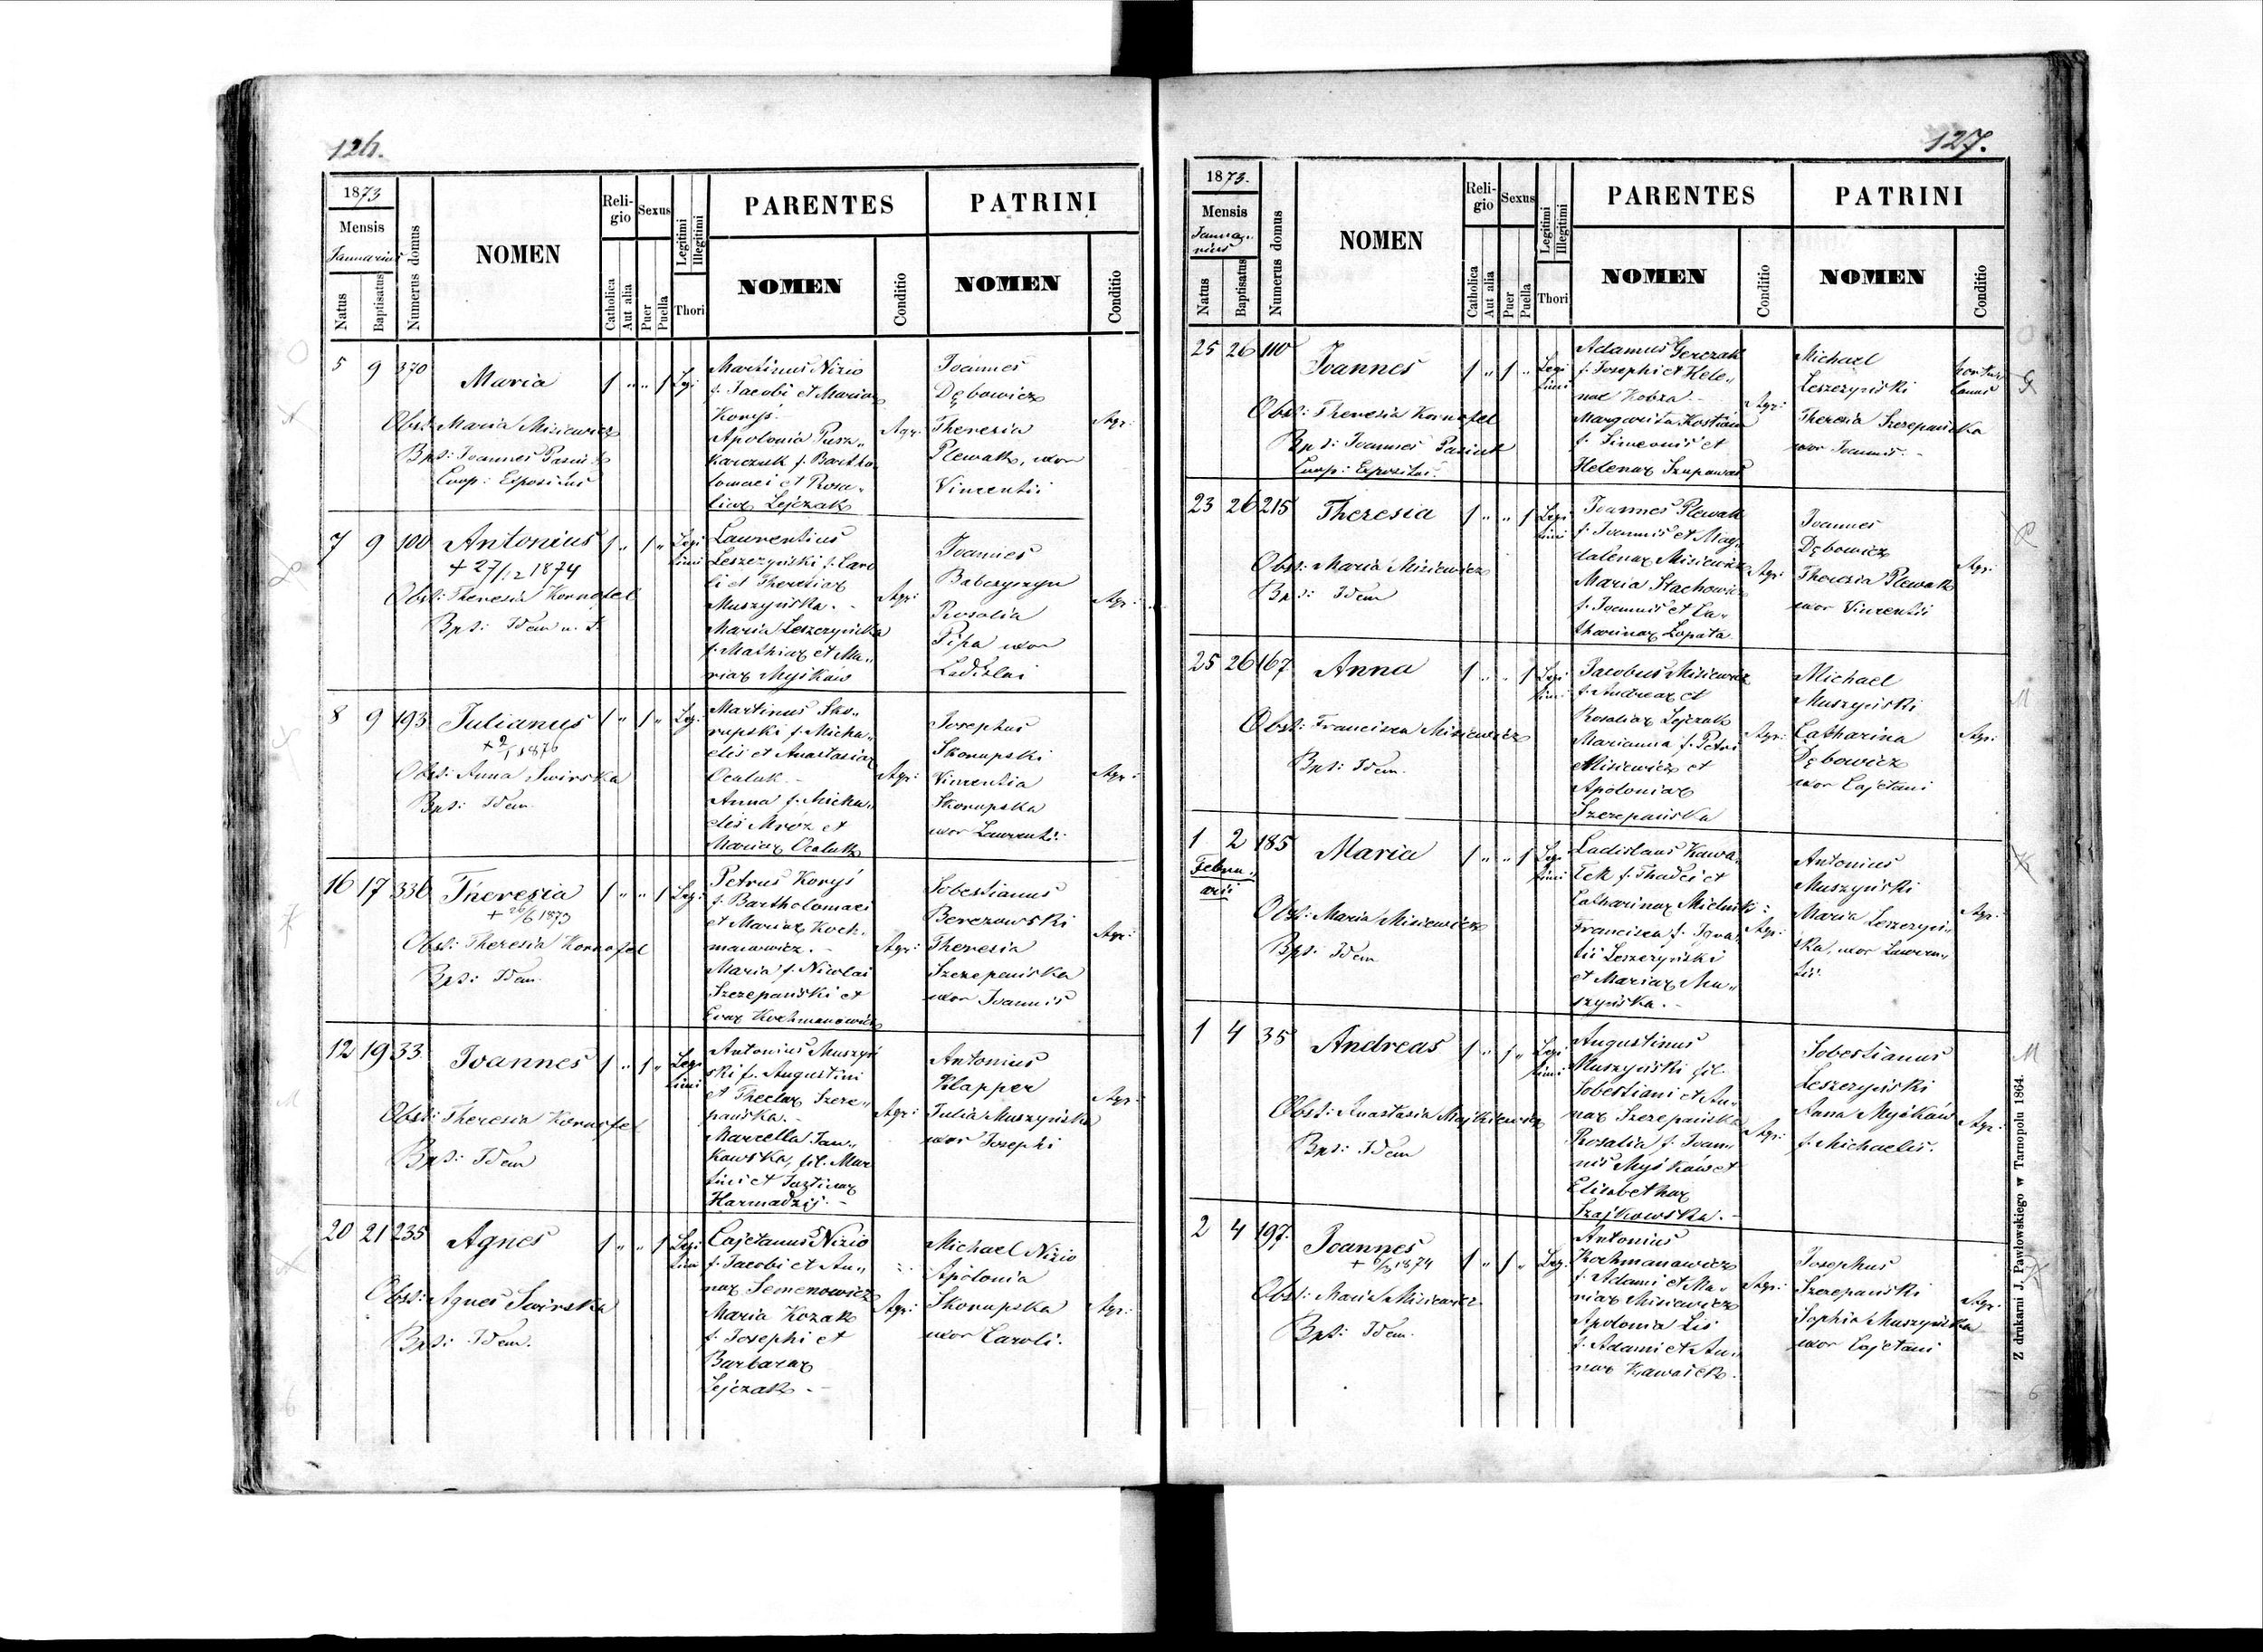 126.
1873
Mensis
Januarius
Natus
Baptisatus
Numerus domus
NOMEN
Reli-
gio
Catholica
Aut alia
Sexus
Puer
Puella
Legitimi
Illegitimi
Thori
PARENTES
NOMEN
Conditio
PATRINI
NOMEN
Conditio
5 9 370
Maria
1 " " 1 Legi
Obst: Maria Misiewicz
Bpt: Joannes Pasiut
Coop: Expositus
Martinus Nizio
f. Jacobi et Mariae
Koryś.
Apolonia
karczuk f. Bartho
lomaei et Rosa„
liae Lejczak
Agr:
Joannes
Dębowicz
Theresia
Plewak, uxor
Vincentii
Agr:
7 9 100
Antonius
+ 27/12 1874
1 " 1 " Legi
timi
Obst: Theresia Kornafel
Bpt: Idem u. s.
Laurentius
Leszczyński f. Caro
li et Theresiae
Muszyńska.
Maria Leszczyńska
f. Mathiae et Ma„
riae Myśków
Agr:
Joannes
Babczyszyn
Rosalia
Pipa uxor
Ladislai
Agr:
8 9 193
Julianus
1876
1 " 1 " Leg:
Obst: Anna Swirska
Bpt: Idem
Martinus Sko„
rupski f. Micha„
elis et Anastasiae
Ocaluk.
Anna f. Micha„
elis Mróz et
Mariae Ocaluk
Agr:
Josephus
Skorupski
Vincentia
Skorupska
uxor Laurentii
Agr:
16 17 336
Theresia
+ 26/6 1873
1 " " 1 Legi
Obst: Theresia Kornafel
Bpt: Idem
Petrus Koryś
f. Bartholomaei
et Mariae Koch„
manowicz.
Maria f. Nicolai
Szczepański et
Evae Kochmanowicz
Agr:
Sebestianus
Berezowski
Theresia
Szczepańska
uxor Joannis
Agr:
12 19 33
Joannes
1 " 1 " Legi
timi
Obst: Theresia Kornafel
Bpt: Idem
Antonius Muszyń
ski f. Augustini
et Theclae Szcze„
pańska.
Marcella Jan„
kowska, fil. Mar
tini et Justinae
Harmadzij.
Agr:
Antonius
Klapper
Julia Muszyńska
uxor Josephi
Agr:
20 21 235
Agnes
1 " " 1 Legi
timi
Obst: Agnes Swirska
Bpt: Idem.
Cajetanus Nizio
f. Jacobi et An„
nae Semenowicz
Maria Kozak
f. Josephi et
Barbarae
Lejczak.
Agr:
Michael Nizio
Apolonia
Skorupska
uxor Caroli.
Agr:
127.
1873.
Mensis
Janua„
rius
Natus
Baptisatus
Numerus domus
NOMEN
Reli-
gio
Catholica
Aut alia
Sexus
Puer
Puella
Legitimi
Illegitimi
Thori
PARENTES
NOMEN
Conditio
PATRINI
NOMEN
Conditio
25 26 110
Joannes
1 " 1 " Legi
timi
Obst: Theresia Kornafel
Bpt: Joannes Pasiut
Coop: Expositus.
Adamus Gerczak
f. Josephi et Hele„
nae Kobza.
Margarita Kostiów
f. Simeonis et
Helenae Szupawas
Agr:
Michael
Leszczyński
Theresia Szczepańska
uxor Joannis.
hortu„
lanus
23 26 215
Theresia
1 " " 1 Legi
timi
Obst: Maria Misiewicz
Bpt: Idem
Joannes Plewak
f. Joannis et Mag„
dalenae Misiewicz
Maria Stachowicz
f. Joannis et Ca„
tharinae Lopata
Agr:
Joannes
Dębowicz
Theresia Plewak
uxor Vincentii
Agr:
25 26 167
Anna
1 " " 1 Legi
timi
Obst: Francisca Misiewicz
Bpt: Idem.
Jacobus Misiewicz
f. Andreae et
Rosaliae Lejczak
Marianna f. Petri
Misiewicz et
Apoloniae
Szczepańska
Agr:
Michael
Muszyński
Catharina
Dębowicz
uxor Cajetani
Agr:
1 2 185
Febru„
arii
Maria
1 " " 1 Legi
timi
Obst: Maria Misiewicz
Bpt: Idem
Ladislaus Kawa„
łek f. Thadei et
Catharinae Mielnik:
Francisca f. Igna„
tii Leszczyński
et Mariae Mu„
szyńska.
Agr:
Antonius
Muszyński
Maria Leszczyń„
ska, uxor Lauren„
tii
Agr:
1 4 35
Andreas
1 " 1 " Legi
timi
Obst: Anastasia
Bpt: Idem
Augustinus
Muszyński fil.
Sebestiani et An„
nae Szczepańska
Rosalia f. Joan„
nis Myśków et
Elisabethae
Szajkowska.
Agr:
Sebestianus
Leszczyński
Anna Myśków
f. Michaelis.
Agr:
2 4 197.
Joannes
1874
1 " 1 " Leg.
Obst: Maria Misiewicz
Bpt: Idem.
Antonius
Kochmanowicz
f. Adami et Ma„
riae Misiewicz
Apolonia Lis
f. Adami et An„
nae Kawałek.
Agr:
Josephus
Szczepański
Sophia Muszyńska
uxor Cajetani
Agr:
Z drukarni J. Pawłowskiego w Tarnopolu 1864.